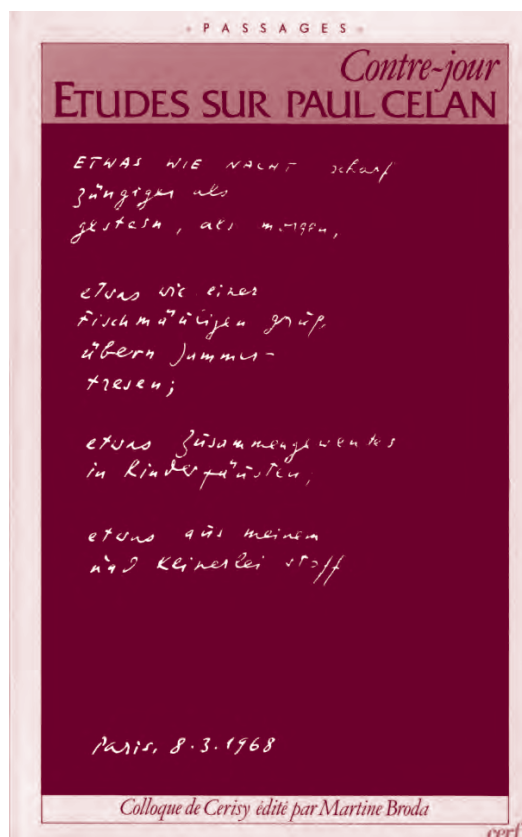 PASSAGES
Contre-jour
ETUDES SUR PAUL CELAN
ETWAS WIE NACHT scharf
züngiger als
gestern, als morgen,
etwas wie einer
Fischmäuligen gruß
übern Jammer-
tresen;
etwas Zusammengewehtes
in Kinderfäusten,
etwas aus meinem
und keinerlei stoff
Paris, 8.3.1968
Colloque de Cerisy édité par Martine Broda
cerf